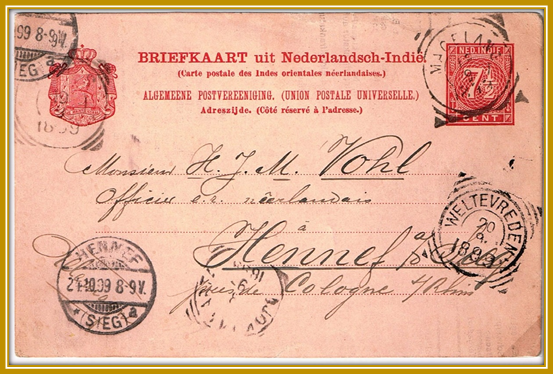 99 8-9V.
(SIEG) a
1899
BRIEFKAART uit Nederlandsch-Indië.
(Carte postale des Indes orientales néerlandaises.)
ALGEMEENE POSTVEREENIGING. (UNION POSTALE UNIVERSELLE.)
Adreszijde. (Côté réservé à l'adresse.)
MAGELANG
NED. INDIE
7½
CENT
Monsieur H. J. M. Vohl
Officier e.r. néerlandais
à
Hennef a/
WELTEVREDEN
20
9
1899
près de Cologne s/Rhin
HENNEF
21.10.99 8-9V.
(SIEG) a